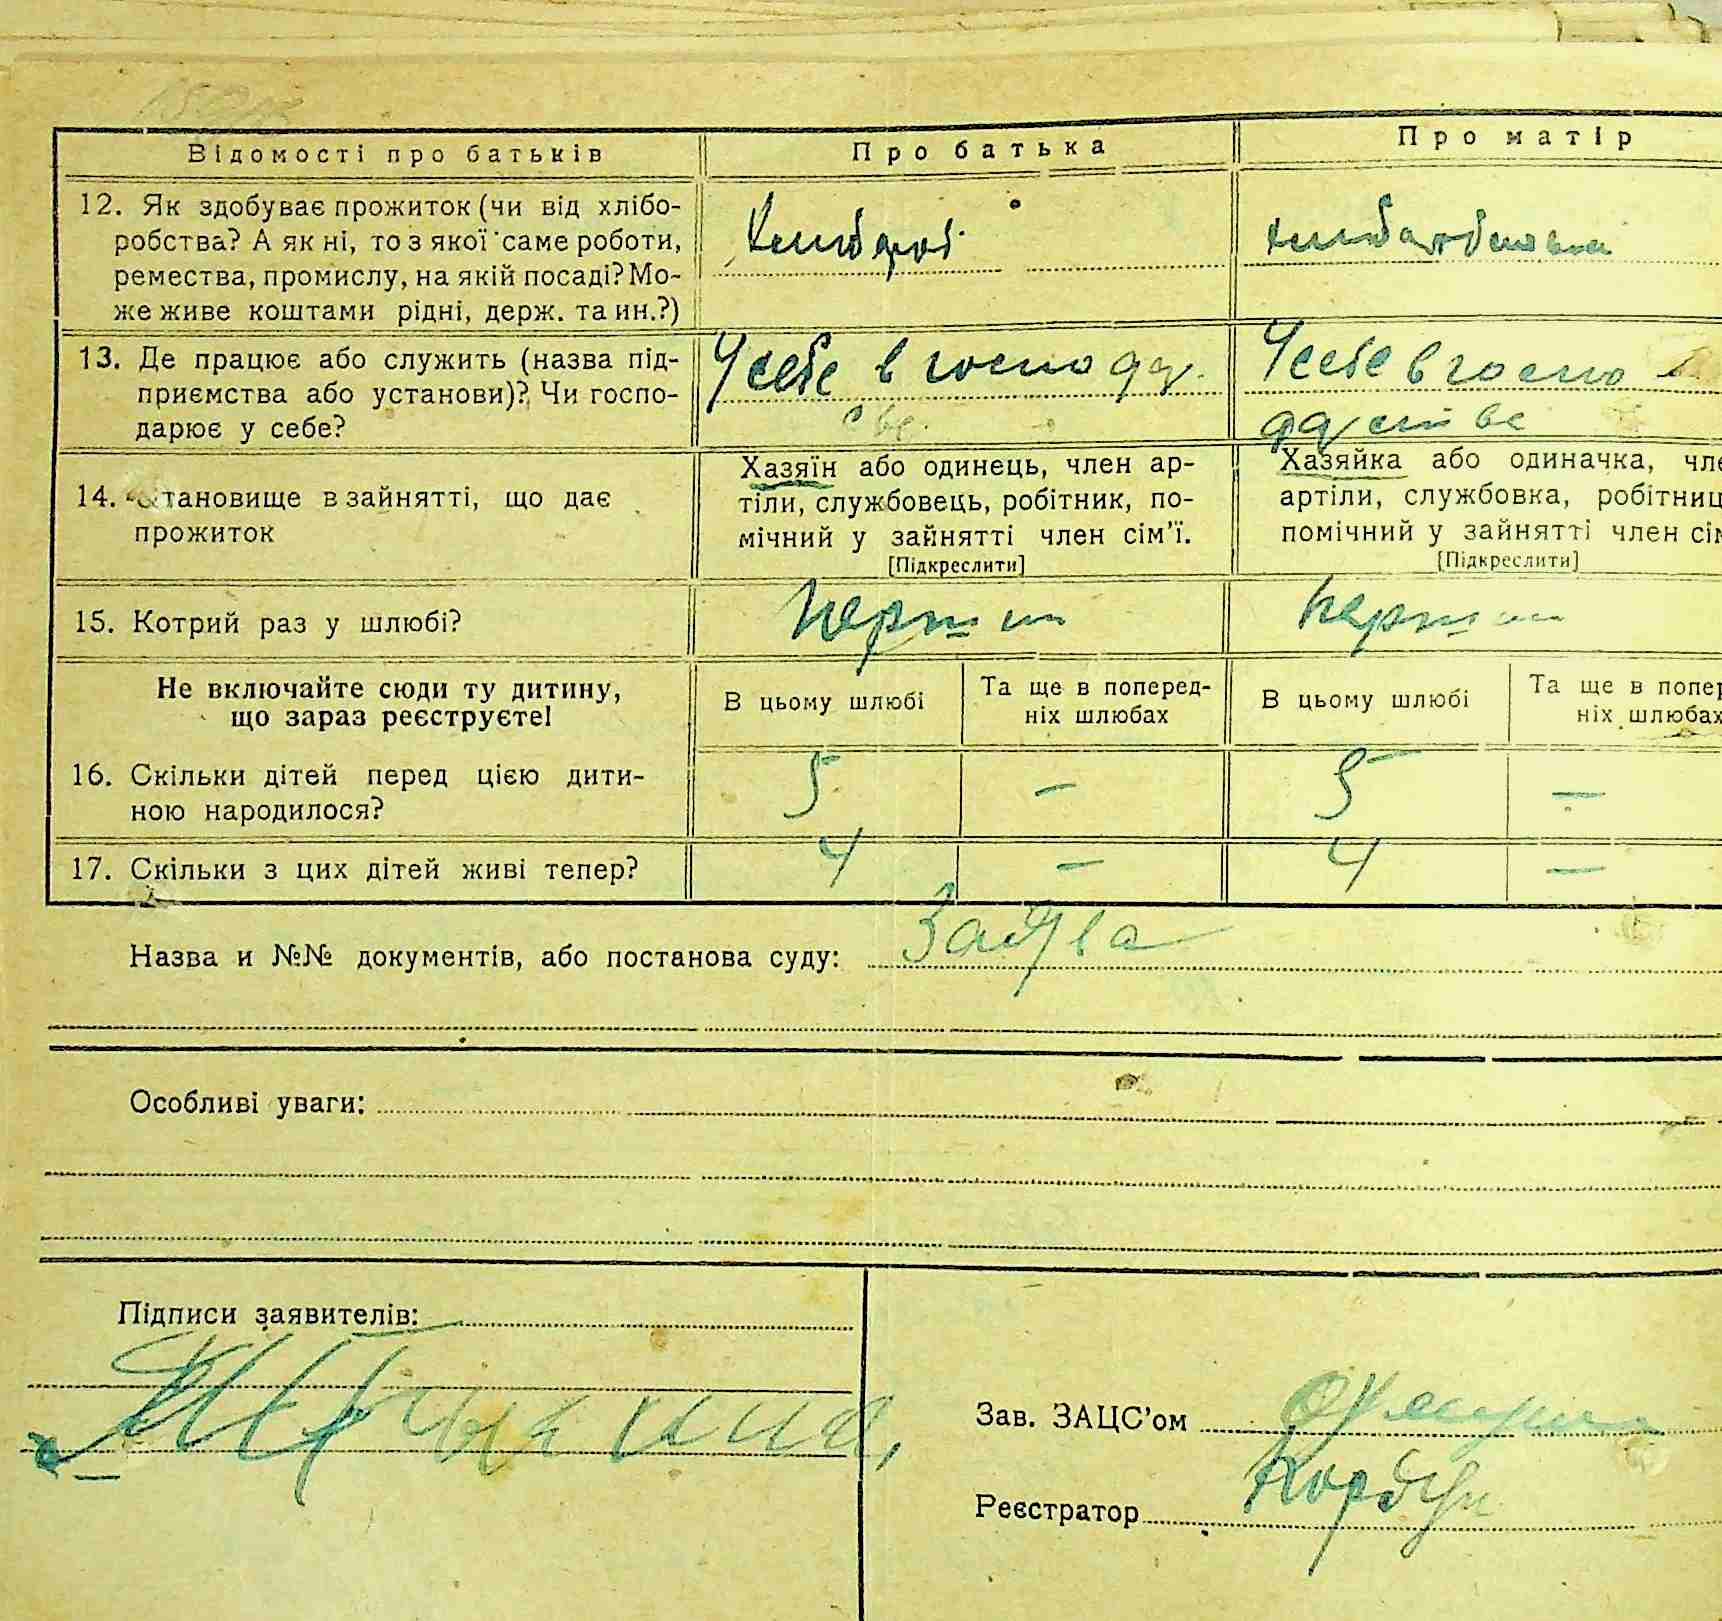 Відомості про батьків
Про батька
Про матір
12. Як здобуває прожиток (чи від хлібо-
робства? А як ні, то з якої саме роботи,
ремества, промислу, на якій посаді? Мо-
же живе коштами рідні, держ. та ин.?)
13. Де працює або служить (назва під-
приємства або установи)? Чи госпо-
дарює у себе?
У себе в господар.
стве
У себе в госпо
дарстве
14. Становище в зайнятті, що дає
прожиток
Хазяїн або одинець, член ар-
тіли, службовець, робітник, по-
мічний у зайнятті член сім'ї.
[Підкреслити]
Хазяйка або одиначка, чле
артіли, службовка, робітниц
помічний у зайнятті член сім
[Підкреслити]
15. Котрий раз у шлюбі?
перший
перший
Не включайте сюди ту дитину,
що зараз реєструєте!
В цьому шлюбі
Та ще в поперед-
ніх шлюбах
В цьому шлюбі
Та ще в попер
ніх шлюбах
16. Скільки дітей перед цією дити-
ною народилося?
5
—
5
—
17. Скільки з цих дітей живі тепер?
4
—
4
—
Назва и №№ документів, або постанова суду: Заява
Особливі уваги:
Підписи заявителів:
Зав. ЗАЦС'ом
Реєстратор